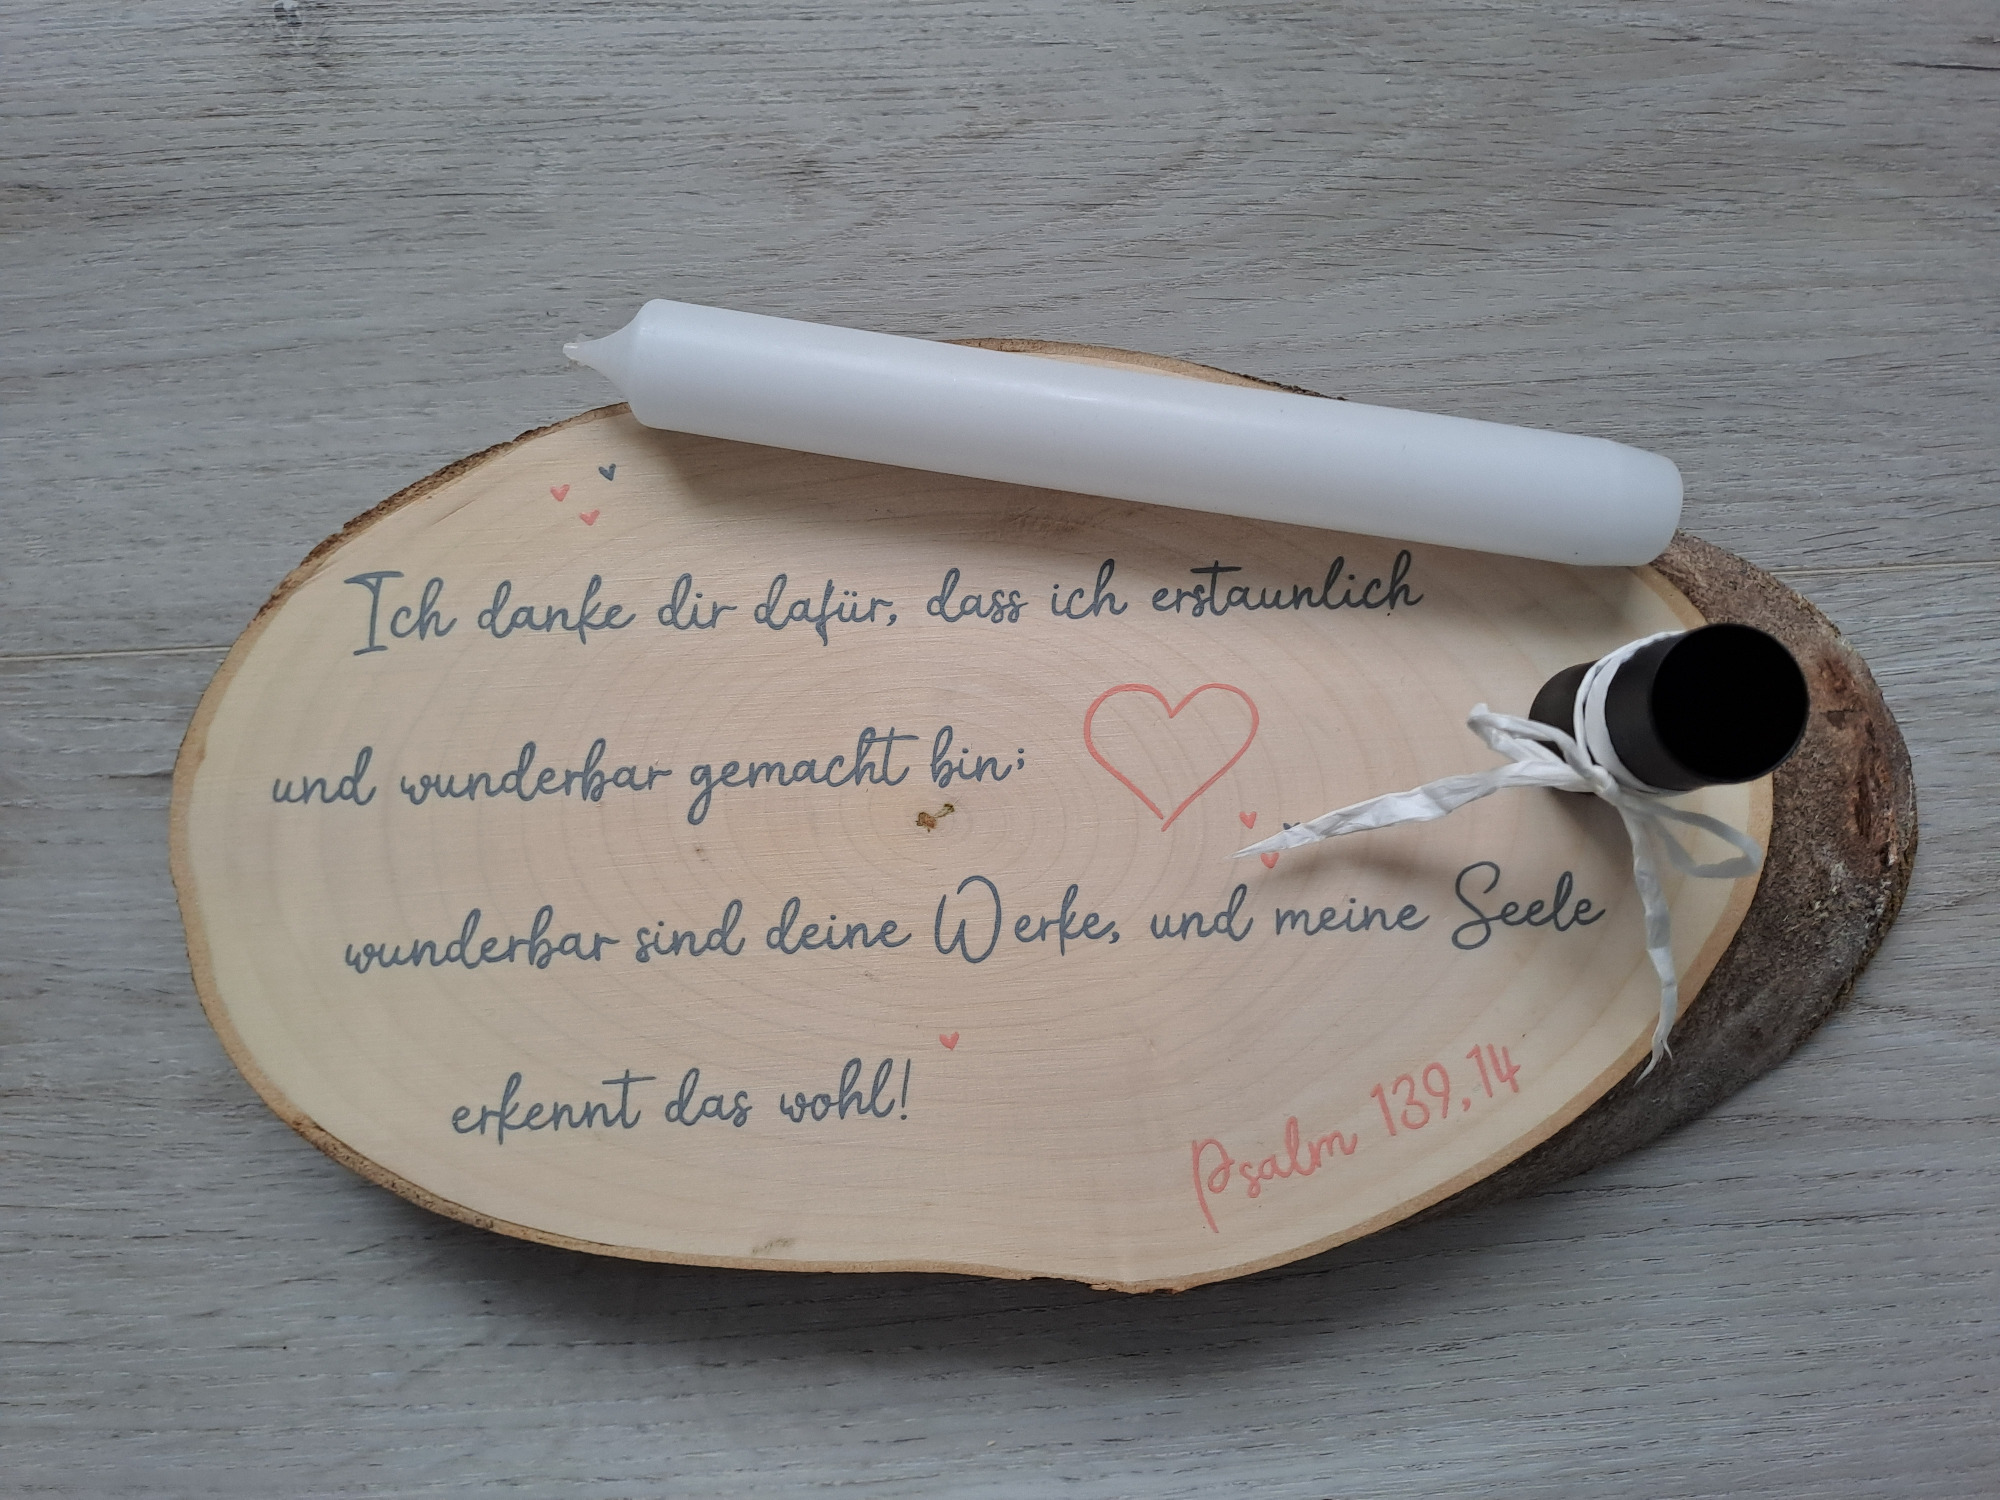 Ich danke dir dafür, dass ich erstaunlich
und wunderbar gemacht bin;
wunderbar sind deine Werke, und meine Seele
erkennt das wohl!
Psalm 139,14